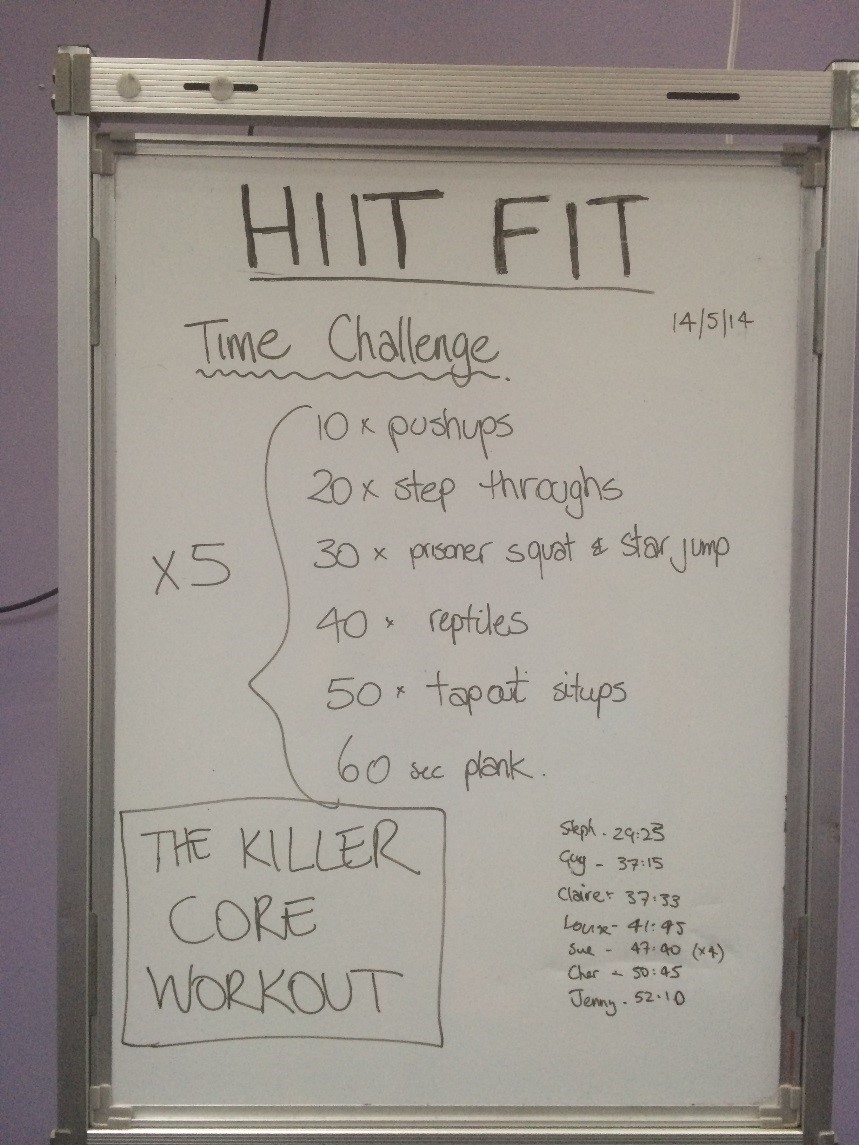 HIIT FIT
14/5/14
Time Challenge.
10 x pushups
20 x step throughs
x5
30 x prisoner squat & star jump
40 x reptiles
50 x tapout situps
60 sec plank.
THE KILLER
CORE
WORKOUT
Steph - 29:23
Guy - 37:15
Claire - 37:33
Louise - 41:45
Sue - 47:40 (x4)
Char - 50:45
Jenny - 52:10